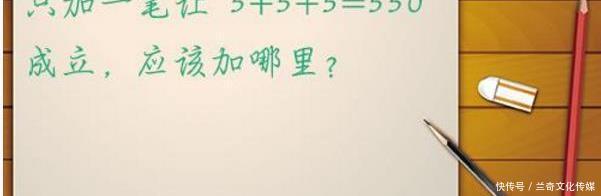 只加一笔让 5+5+5=550
成立，应该加哪里？
快传号 / 兰奇文化传媒